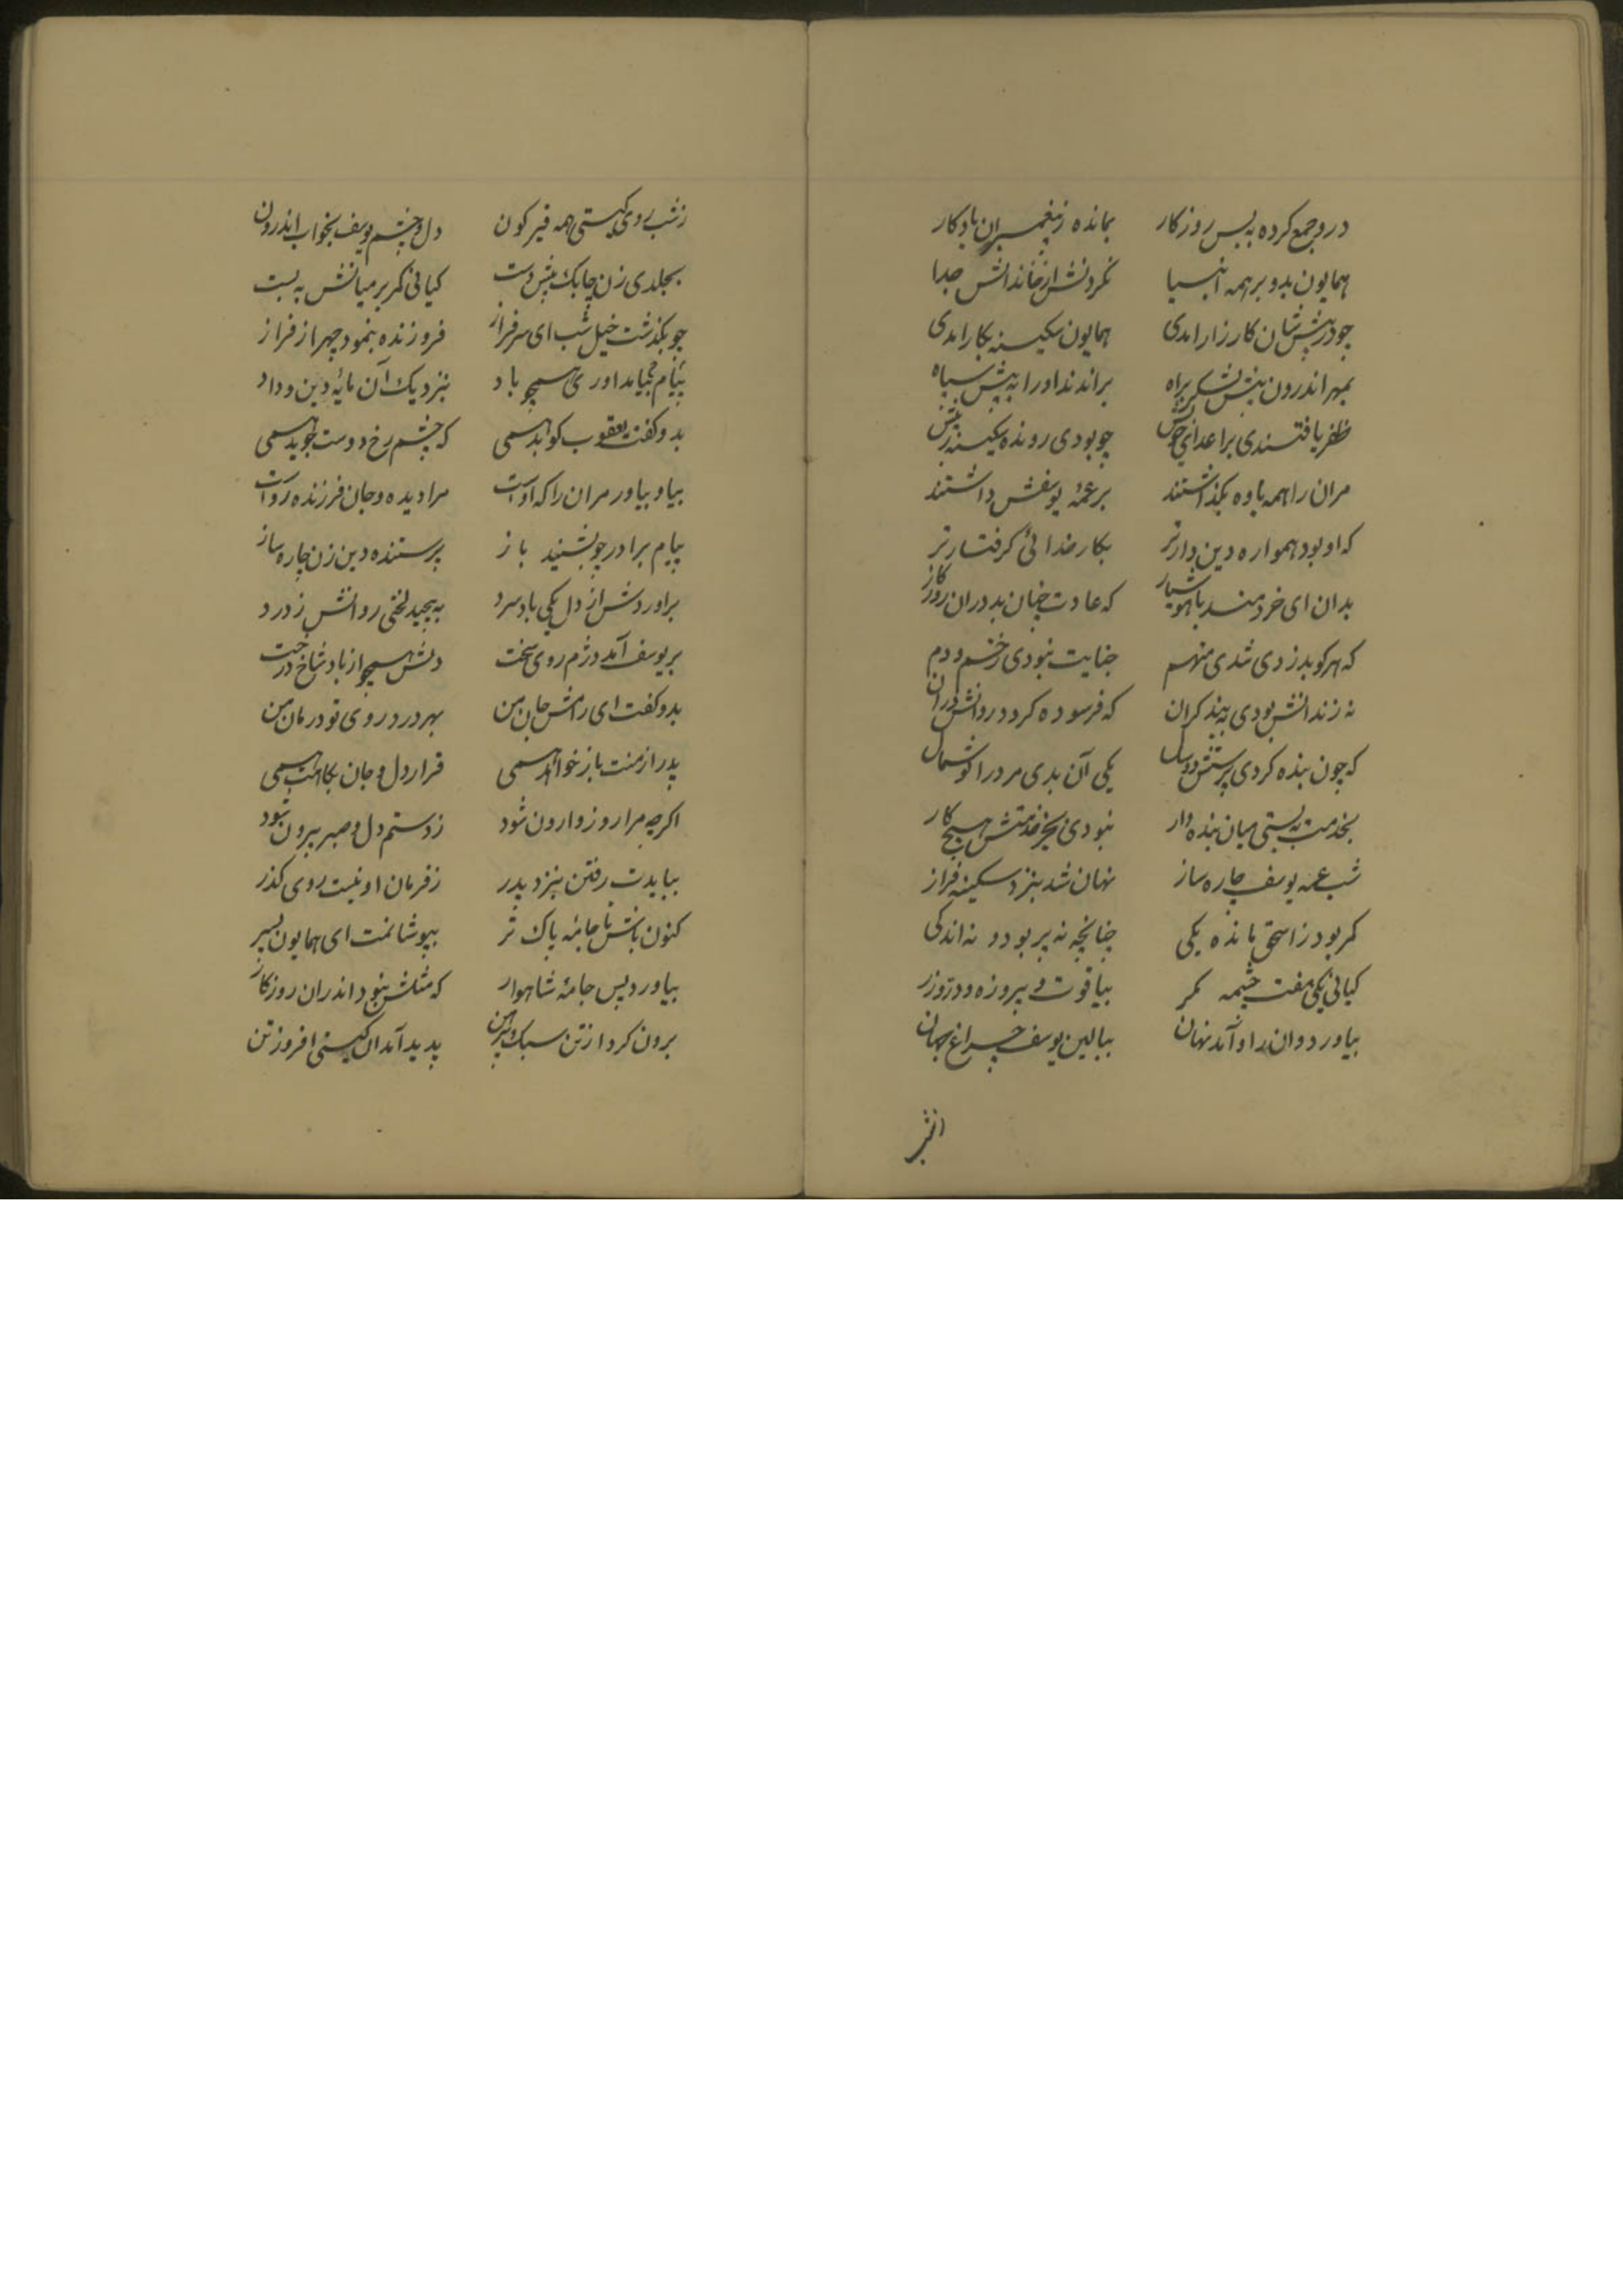 درو جمع کرده به بس روزکار بمانده ز پیغمبران یادکار
همایون بدو بر همه انبیا نکردنش از خاندانش جدا
چو در پیش شان کارزار امدی همایون سکینه بکار امدی
بمهر اندرون پیش لشکر براه براندند او را به پیش سپاه
ظفر یافتندی بر اعدای خویش چو بودی رونده سکینه ز پیش
مران را همه یاوه بکذاشتند بر عمهٔ یوسفش داشتند
که او بود همواره دین دارتر بکار خدائی کرفتارتر
بدان ای خردمند با هوشیار که عادت چنان بد دران روزکار
که هر کو بدزدی شدی متهم جنایت نبودی ز خشم و دم
نه زندانش بودی نه بند کران که فرسوده کردد روانش دران
که چون بنده کردی پرستش دو سال یکی آن بدی مر ورا کوشمال
بخدمت به بستی میان بنده وار نبودی بجز خدمتش هیچ کار
شب عمه یوسف چاره ساز نهان شد بنزد سکینه فراز
کمر بود ز اسحق مانده یکی چنانچه نه پر بود و نه اندکی
کیانی یکی هفت چشمه کمر بیاقوت و پیروزه و در و زر
بیاورد وان را و آمد نهان ببالین یوسف چراغ جهان
ز شب روی کیتی همه قیرکون دل و چشم یوسف بخواب اندرون
بجلدی زن چابک پیش دست کیانی کمر بر میانش به بست
چو بکذشت خیل شب ای سرفراز فروزنده بنمود چهر از فراز
پیام بیامد اوری همچو باد بنزدیک آن مایهٔ دین و داد
بدو کفت یعقوب کوید همی که چشم رخ دوست جوید همی
بیا و بیاور مران را که اوست مرا دیده و جان فرزنده رواست
پیام برادر چو بشنید باز پرستنده دین زن چاره ساز
براورد ش از دل یکی باد سرد به پیچید لختی روانش ز درد
بر یوسف آمد دژم روی سخت دلش همچو از باد شاخ درخت
بدو کفت ای رامش جان من بهر درد روی تو درمان من
پدر از منت باز خواهد همی قرار دل و جان بکاهد همی
اکرچه مرا روز وارون شود ز دستم دل و صبر بیرون شود
ببایدت رفتن بنزد پدر ز فرمان او نیست روی کذر
کنون باش تا جامهٔ پاک تر بپوشانمت ای همایون پسر
بیاورد پس جامهٔ شاهوار که مثلش نبود اندران روزکار
برون کرد از تن سبک پیرهن پدید آمد ان کیتی افروز تن